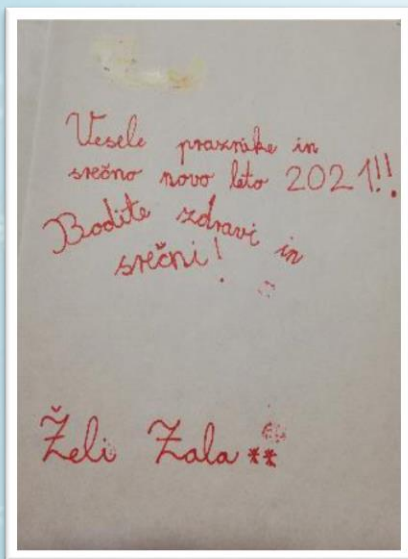 Vesele praznike in
srečno novo leto 2021!!
Bodite zdravi in
srečni!
Želi Zala **